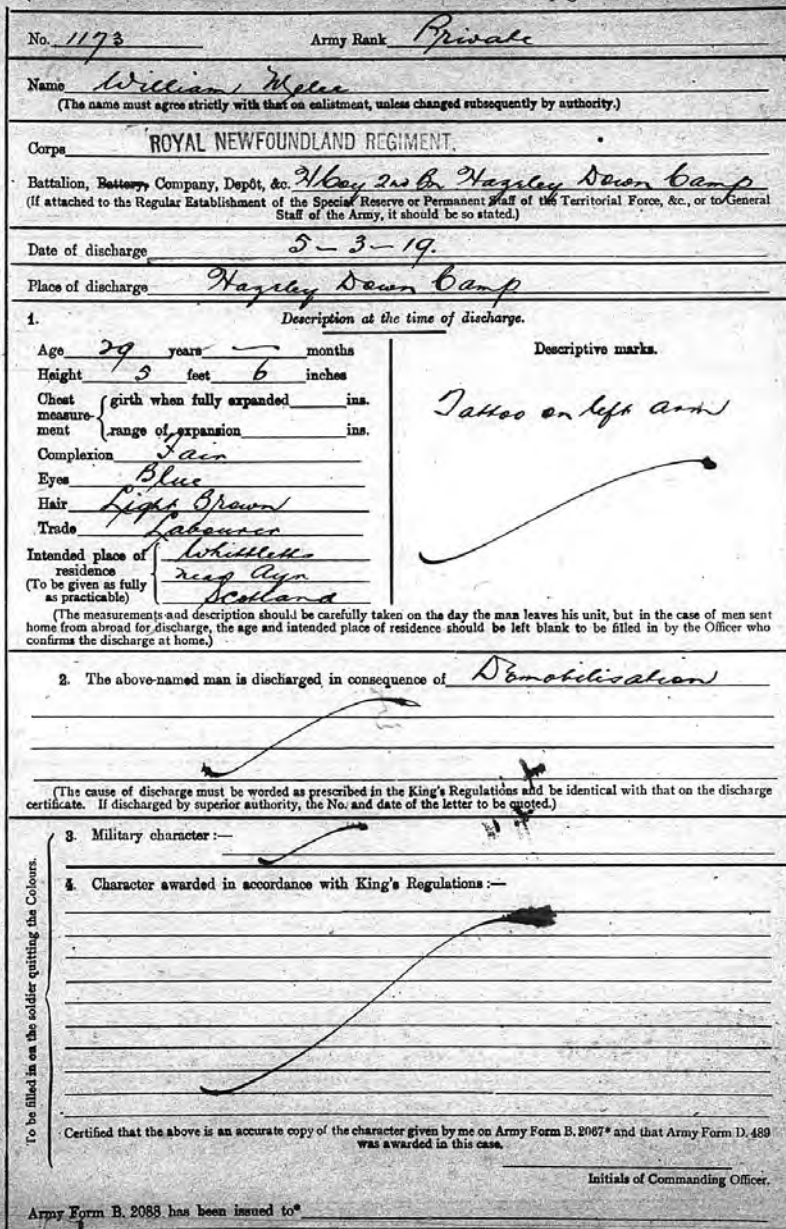 No. 1173 Army Rank Private
Name William
(The name must agree strictly with that on enlistment, unless changed subsequently by authority.)
Corps ROYAL NEWFOUNDLAND REGIMENT.
Battalion, Battery, Company, Depôt, &c. H Coy 2nd Bn Hazeley Down Camp
(If attached to the Regular Establishment of the Special Reserve or Permanent Staff of the Territorial Force, &c., or to General
Staff of the Army, it should be so stated.)
Date of discharge 5-3-19.
Place of discharge Hazeley Down Camp
1. Description at the time of discharge.
Age 29 years — months
Height 5 feet 6 inches
Chest measurement girth when fully expanded ins.
range of expansion ins.
Complexion Fair
Eyes Blue
Hair Light Brown
Trade Labourer
Intended place of residence Whittletts
(To be given as fully as practicable) near Ayr
Scotland
Descriptive marks.
Tattoo on left arm
(The measurements and description should be carefully taken on the day the man leaves his unit, but in the case of men sent
home from abroad for discharge, the age and intended place of residence should be left blank to be filled in by the Officer who
confirms the discharge at home.)
2. The above-named man is discharged in consequence of Demobilisation
(The cause of discharge must be worded as prescribed in the King's Regulations and be identical with that on the discharge
certificate. If discharged by superior authority, the No. and date of the letter to be quoted.)
To be filled in on the soldier quitting the Colours.
3. Military character :—
4. Character awarded in accordance with King's Regulations :—
Certified that the above is an accurate copy of the character given by me on Army Form B. 2067* and that Army Form D. 489
was awarded in this case.
Initials of Commanding Officer.
Army Form B. 2088 has been issued to*